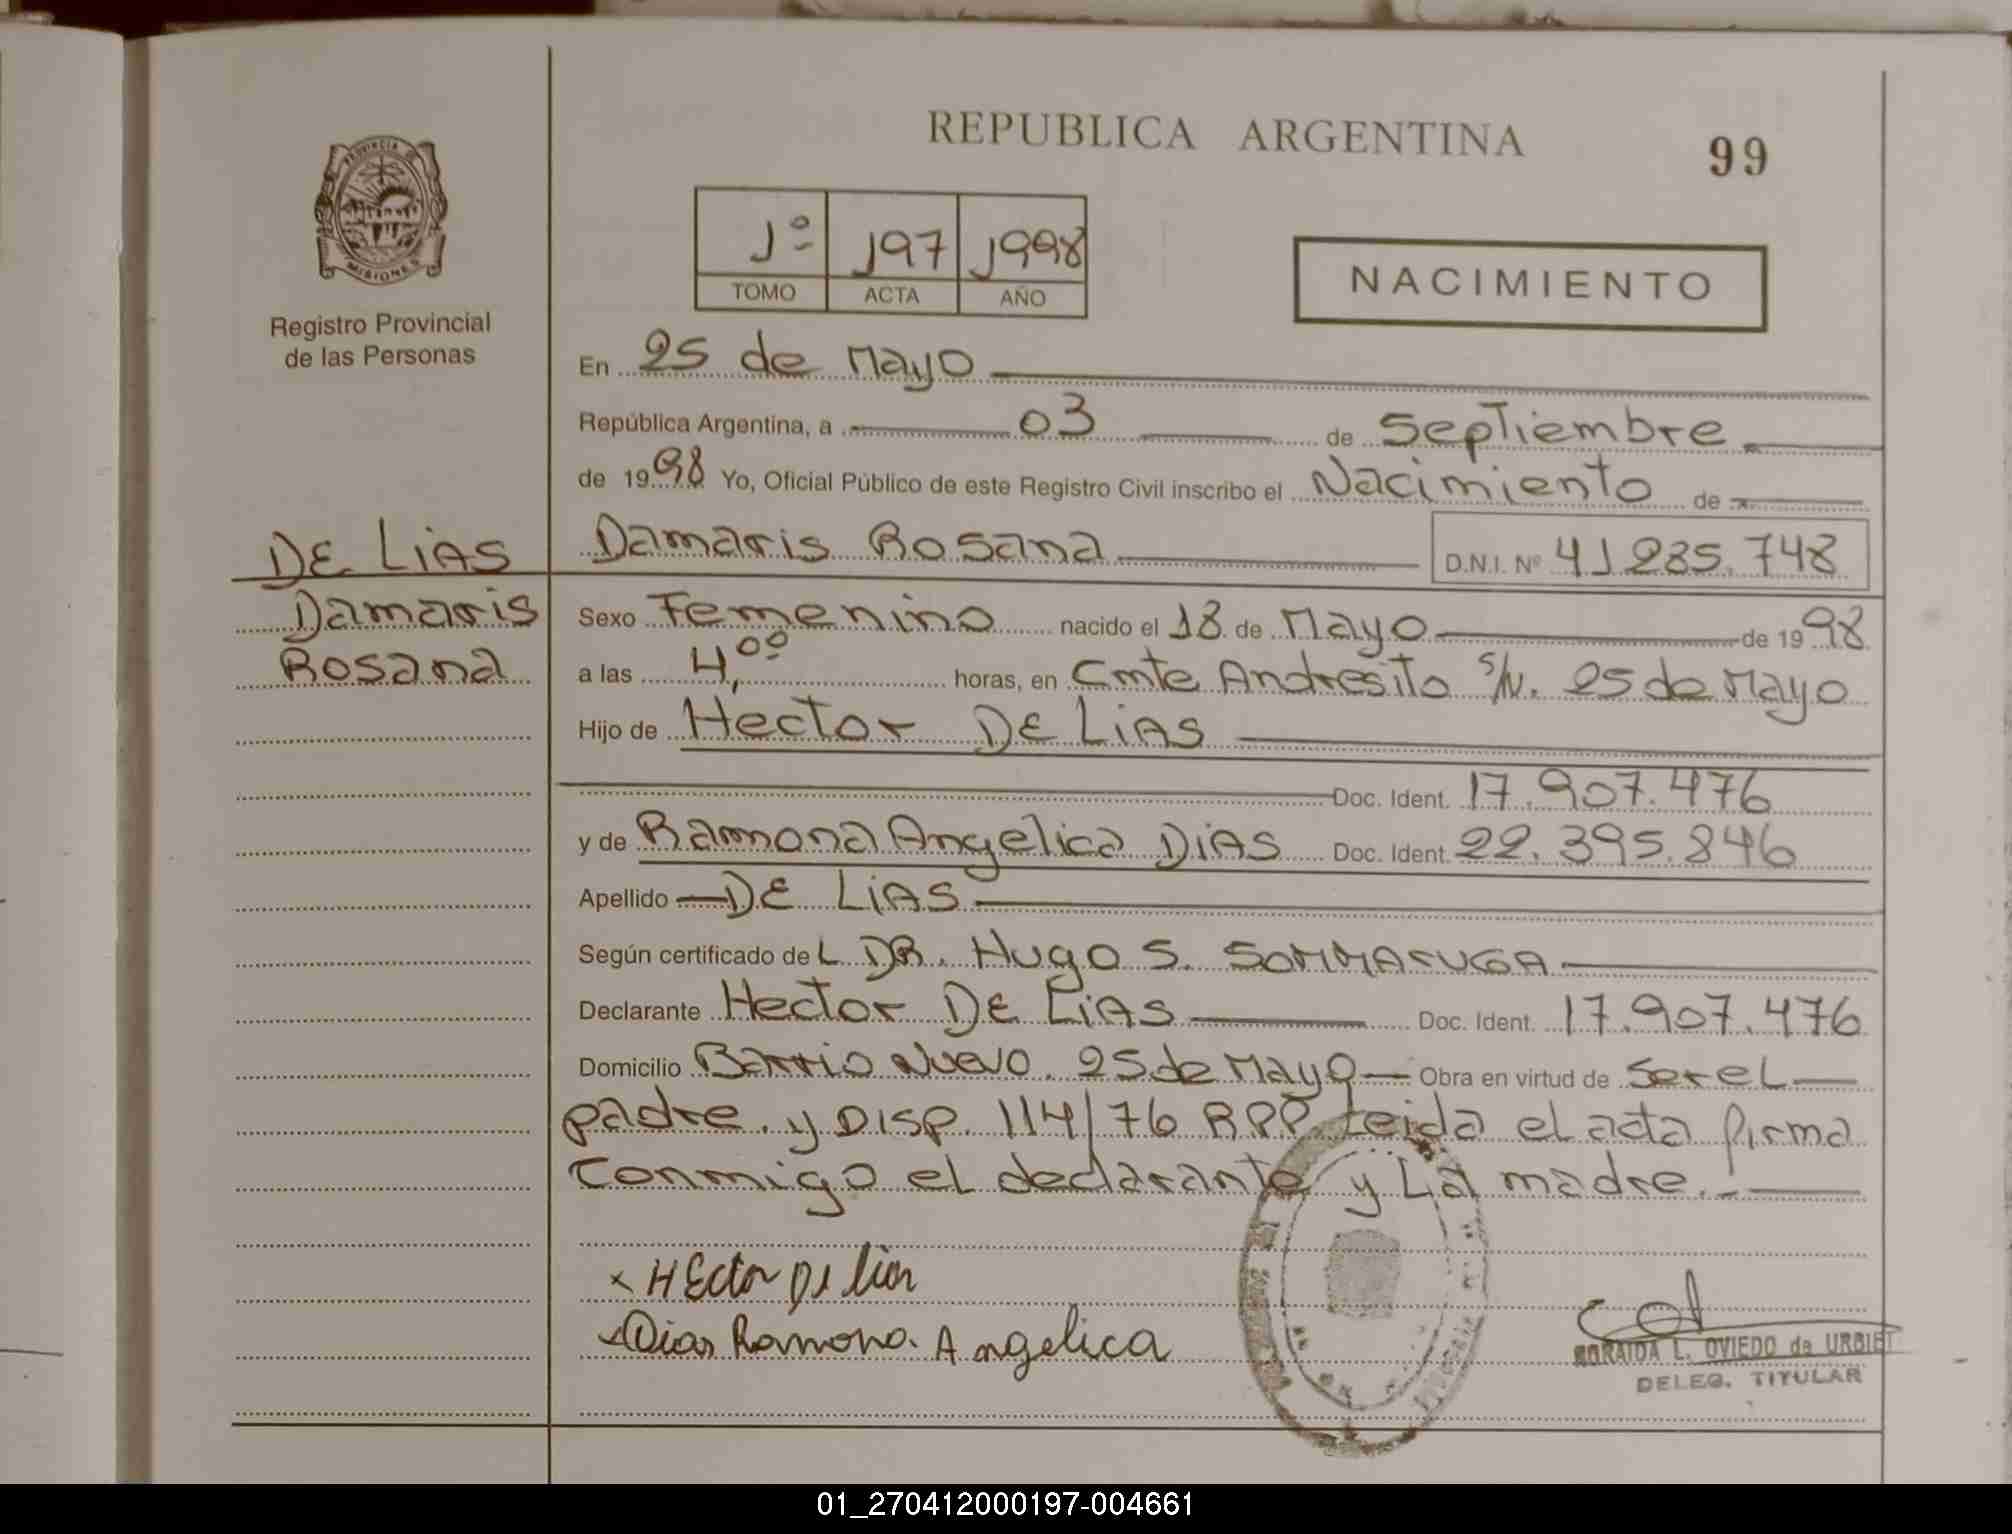 REPUBLICA ARGENTINA
99
PROVINCIA DE
MISIONES
Registro Provincial
de las Personas
1º 197 1998
TOMO ACTA AÑO
NACIMIENTO
En 25 de Mayo
República Argentina, a 03 de Septiembre
de 1998 Yo, Oficial Público de este Registro Civil inscribo el Nacimiento de
DE LiAS
Damaris
Rosana
Damaris Rosana D.N.I. Nº 41285.748
Sexo Femenino nacido el 18 de Mayo de 1998
a las 4,00 horas, en Cmte Andresito S/N. 25 de Mayo
Hijo de Hector DE LiAS
Doc. Ident. 17.907.476
y de Ramona Angelica DiAS Doc. Ident. 22.395.846
Apellido DE LiAS
Según certificado de L DR. Hugo S. SOMMARUGA
Declarante Hector DE LiAS Doc. Ident. 17.907.476
Domicilio Barrio Nuevo. 25 de Mayo Obra en virtud de ser el
padre. y DISP. 114/76 RPP Leida el acta firma
conmigo el declarante y La madre.
x HEctor De lias
x Dias Ramona. Angelica
SORAIDA L. OVIEDO de URBIET
DELEG. TITULAR
01_270412000197-004661